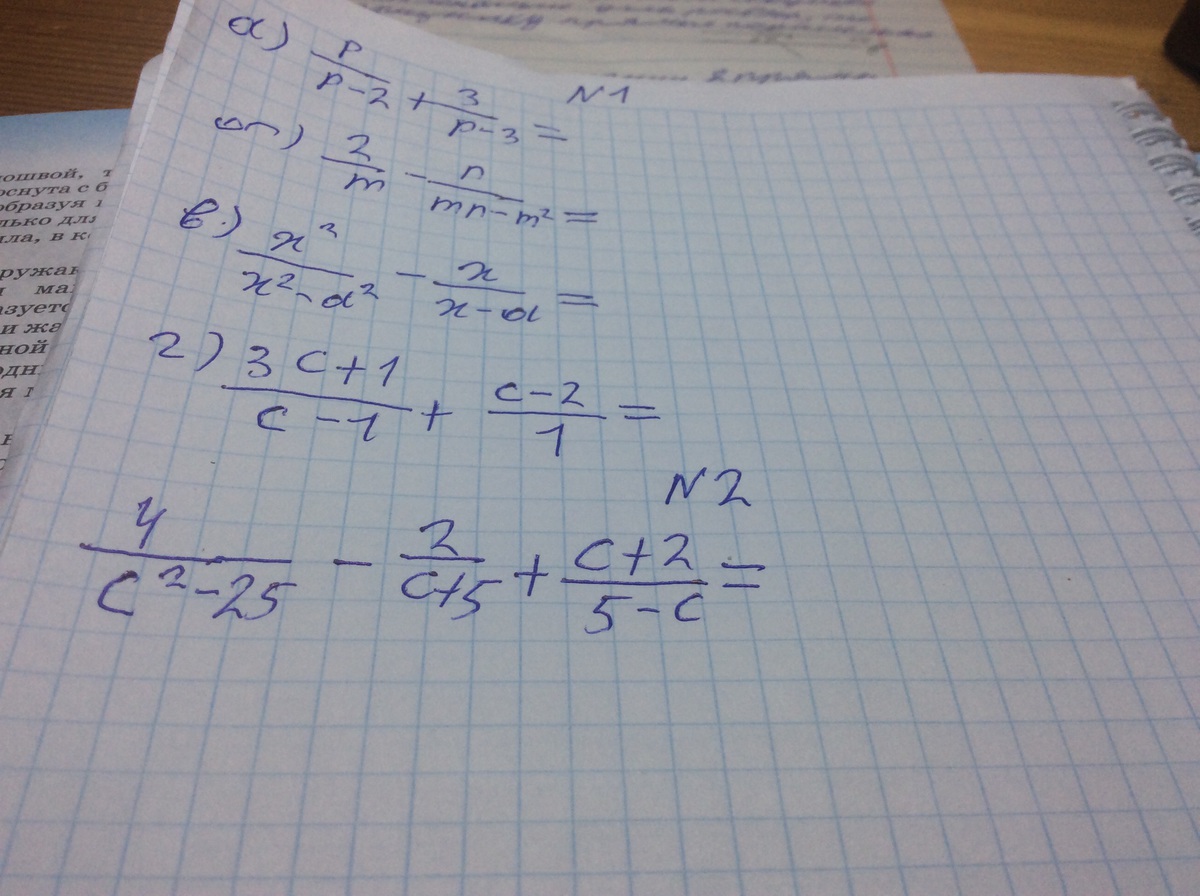 а) p/(p-2) + 3/(p-3) =
N1
б) 2/m - n/(mn-m²) =
в.) x²/(x²-a²) - x/(x-a) =
г) (3c+1)/(c-1) + (c-2)/1 =
N2
4/(c²-25) - 2/(c+5) + (c+2)/(5-c) =
ошвой, т
оснута с б
образуя
лько для
ла, в к
ружа
ма
азуетс
и жа
ной